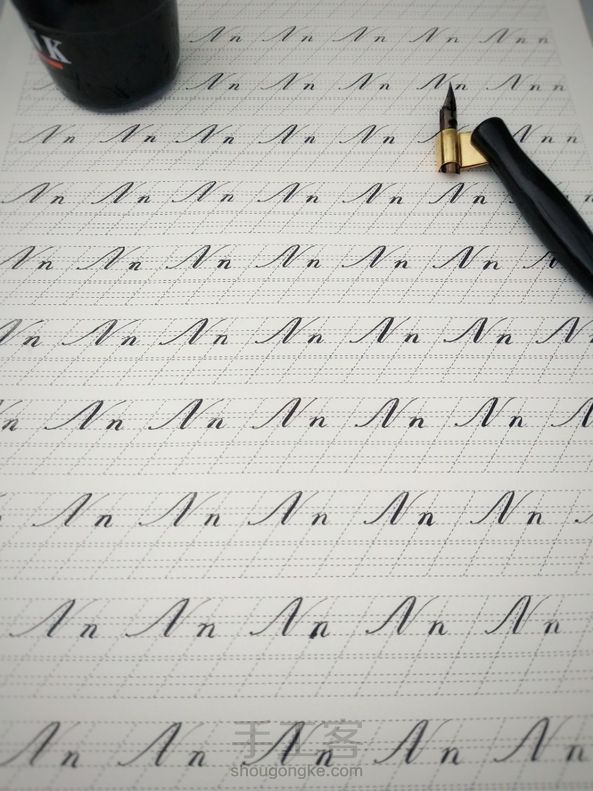 NK
Nn Nn Nn Nn Nnn
Nn Nn Nn Nn Nnnn
Nn Nn Nn Nn Nn N Nnn
Nn Nn Nn Nn Nn Nn n
Nn Nn Nn Nn Nn Nn N
Nn Nn Nn Nn Nn Nn N
n Nn Nn Nn Nn Nn N
Nn Nn Nn Nn Nn
Nn Nn Nn Nn Nn
Nn Nn Nn Nn Nn
手工客
shougongke.com